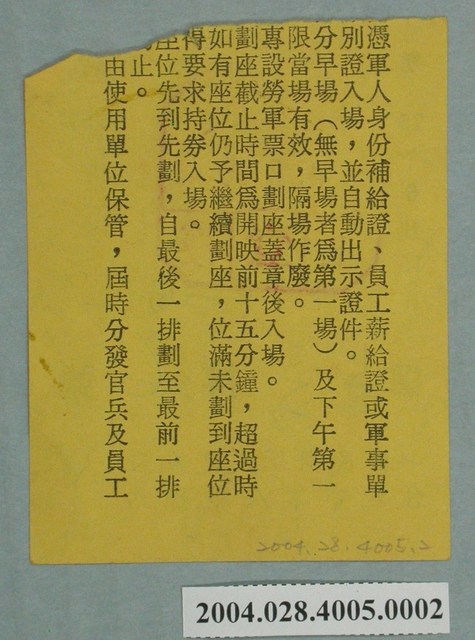 憑軍人身份補給證、員工薪給證或軍事單
別證入場，並自動出示證件。
分早場（無早場者爲第一場）及下午第一
限當場有效，隔場作廢。
專設勞軍票口劃座蓋章後入場。
劃座截止時間爲開映前十五分鐘，超過時
如有座位仍予繼續劃座，位滿未劃到座位
得要求持券入場。
座位先到先劃，自最後一排劃至最前一排
止。
由使用單位保管，屆時分發官兵及員工
2004.28.4005.2
2004.028.4005.0002